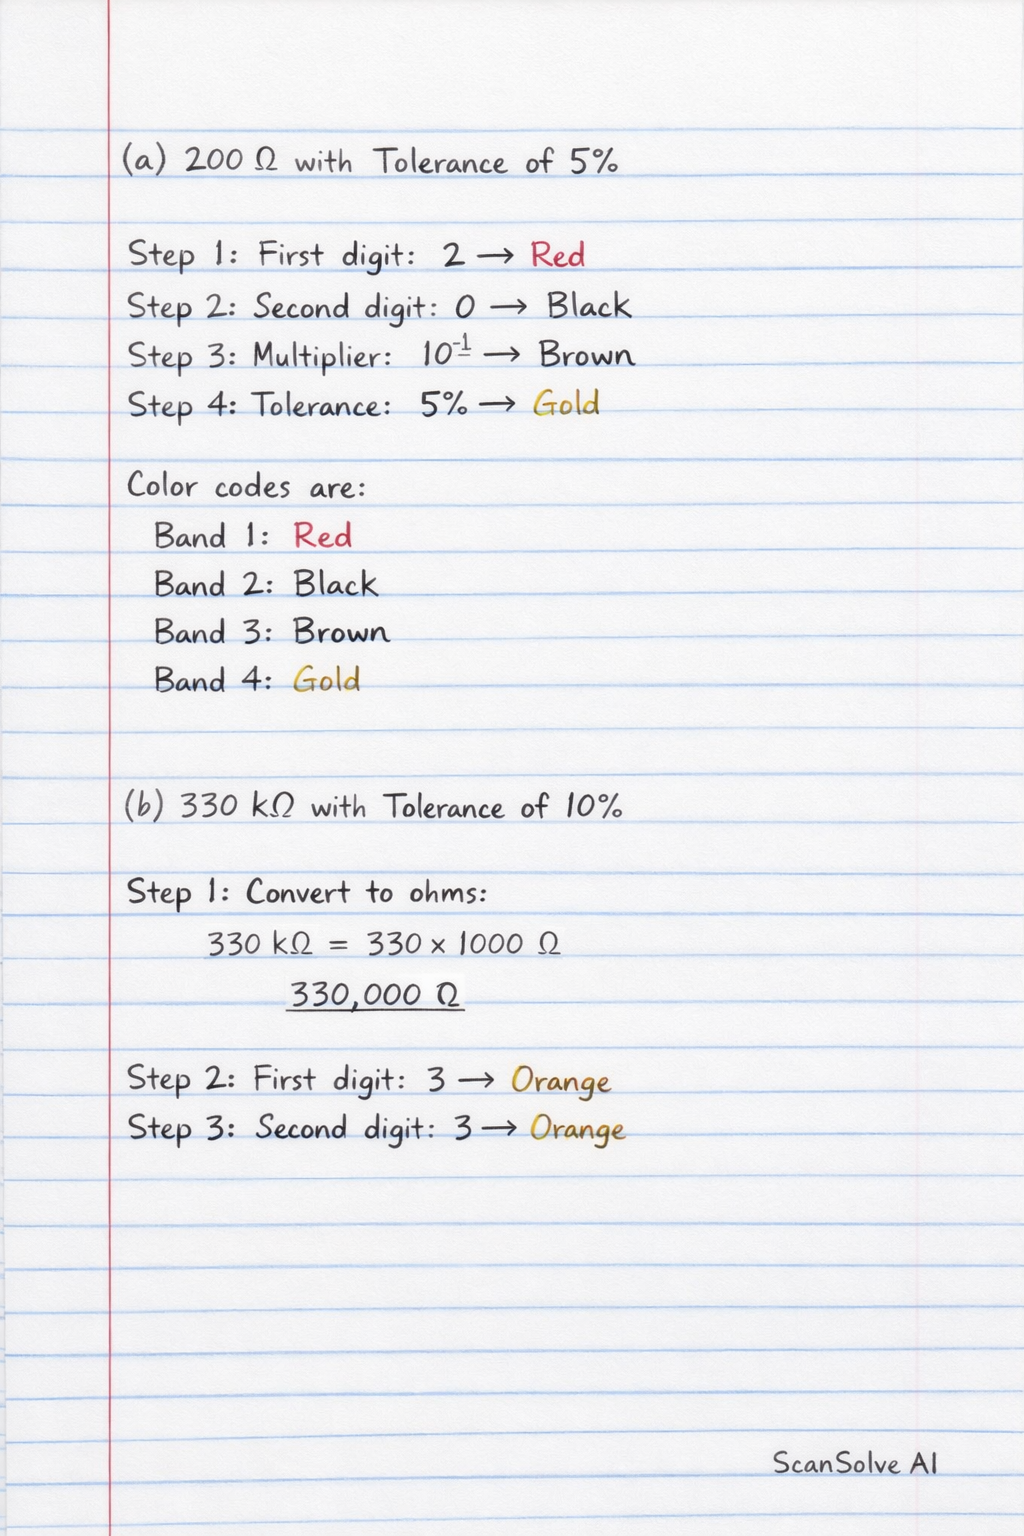 (a) 200 Ω with Tolerance of 5%
Step 1: First digit: 2 → Red
Step 2: Second digit: 0 → Black
Step 3: Multiplier: 10⁻¹ → Brown
Step 4: Tolerance: 5% → Gold
Color codes are:
Band 1: Red
Band 2: Black
Band 3: Brown
Band 4: Gold
(b) 330 kΩ with Tolerance of 10%
Step 1: Convert to ohms:
330 kΩ = 330 × 1000 Ω
330,000 Ω
Step 2: First digit: 3 → Orange
Step 3: Second digit: 3 → Orange
ScanSolve AI